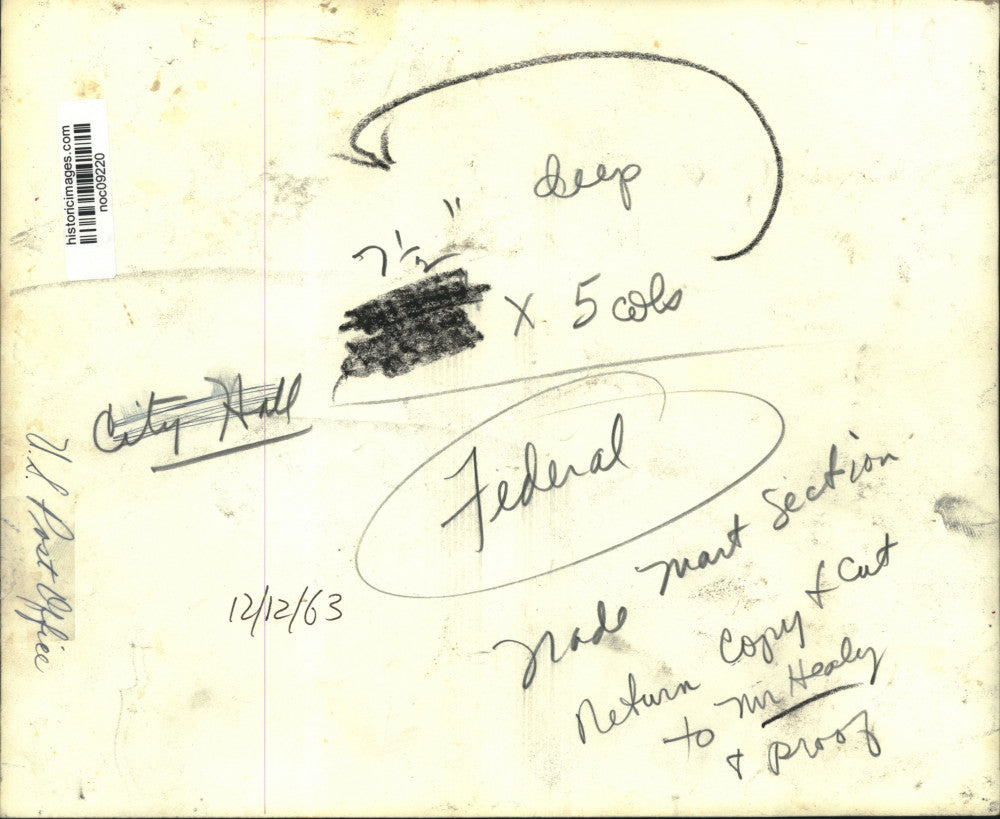 historicimages.com
noc09220
deep
7 1/2"
X 5 cols
City Hall
Federal
U.S. Post Office
12/12/63
Mart Section
Return Copy & Cut
to Mr Healy
& proof